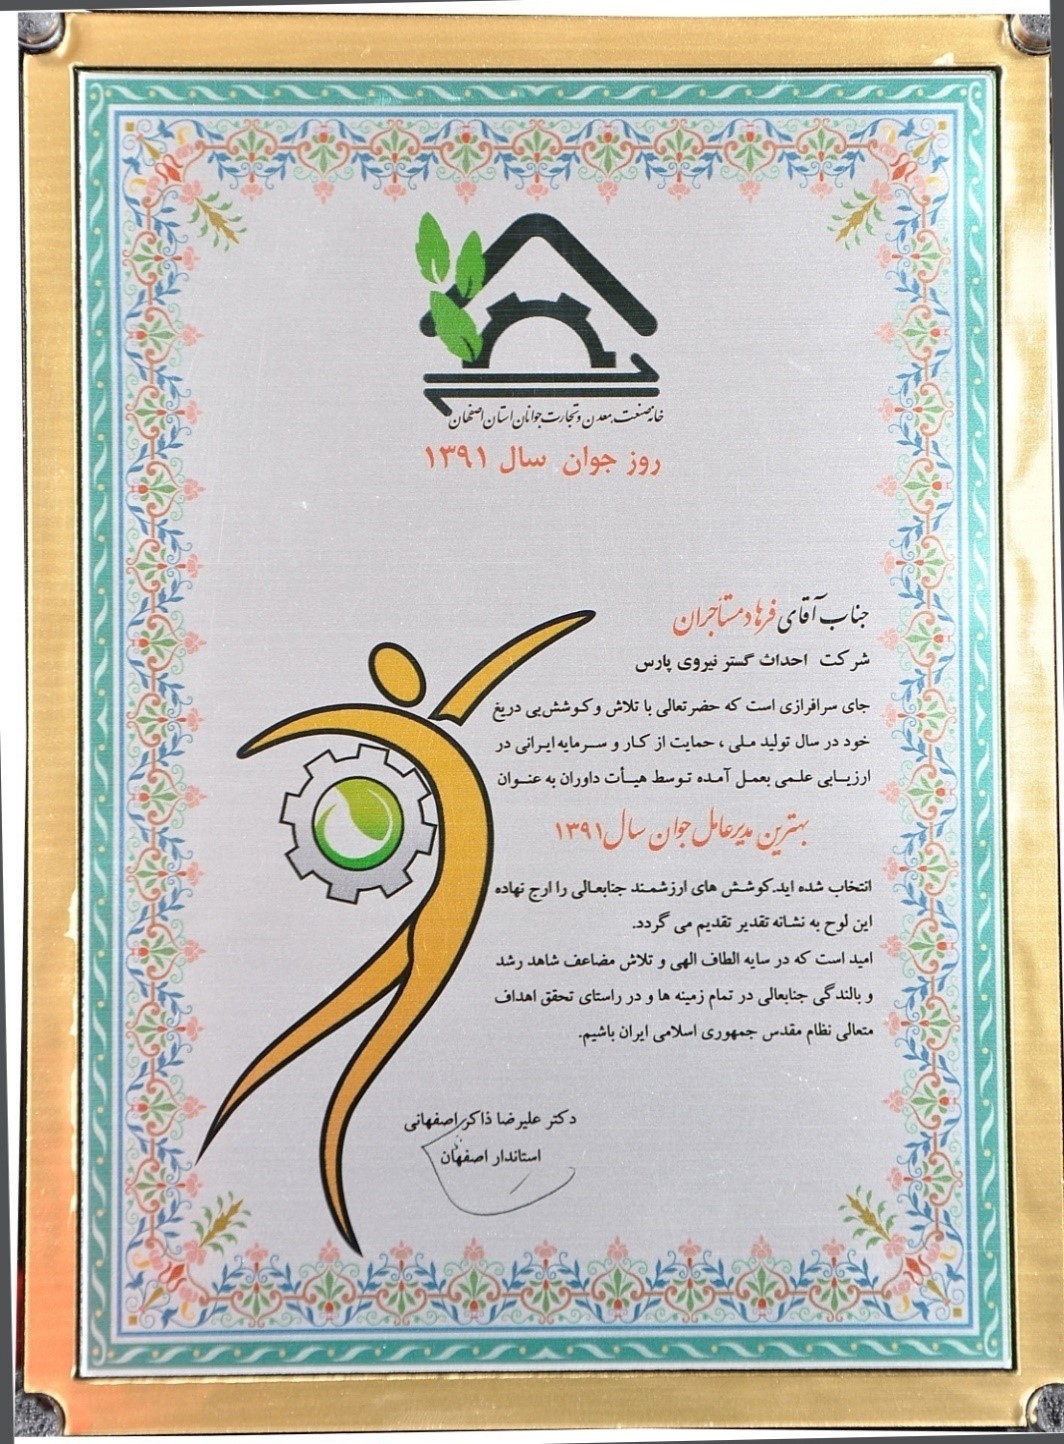 خانه صنعت، معدن و تجارت جوانان استان اصفهان
روز جوان سال ۱۳۹۱
جناب آقای فرهاد مستأجران
شرکت احداث گستر نیروی پارس
جای سرافرازی است که حضرتعالی با تلاش و کوشش بی دریغ
خود در سال تولید ملی ، حمایت از کار و سرمایه ایرانی در
ارزیابی علمی بعمل آمده توسط هیأت داوران به عنوان
بهترین مدیرعامل جوان سال ۱۳۹۱
انتخاب شده اید.کوشش های ارزشمند جنابعالی را ارج نهاده
این لوح به نشانه تقدیر تقدیم می گردد.
امید است که در سایه الطاف الهی و تلاش مضاعف شاهد رشد
و بالندگی جنابعالی در تمام زمینه ها و در راستای تحقق اهداف
متعالی نظام مقدس جمهوری اسلامی ایران باشیم.
دکتر علیرضا ذاکر اصفهانی
استاندار اصفهان